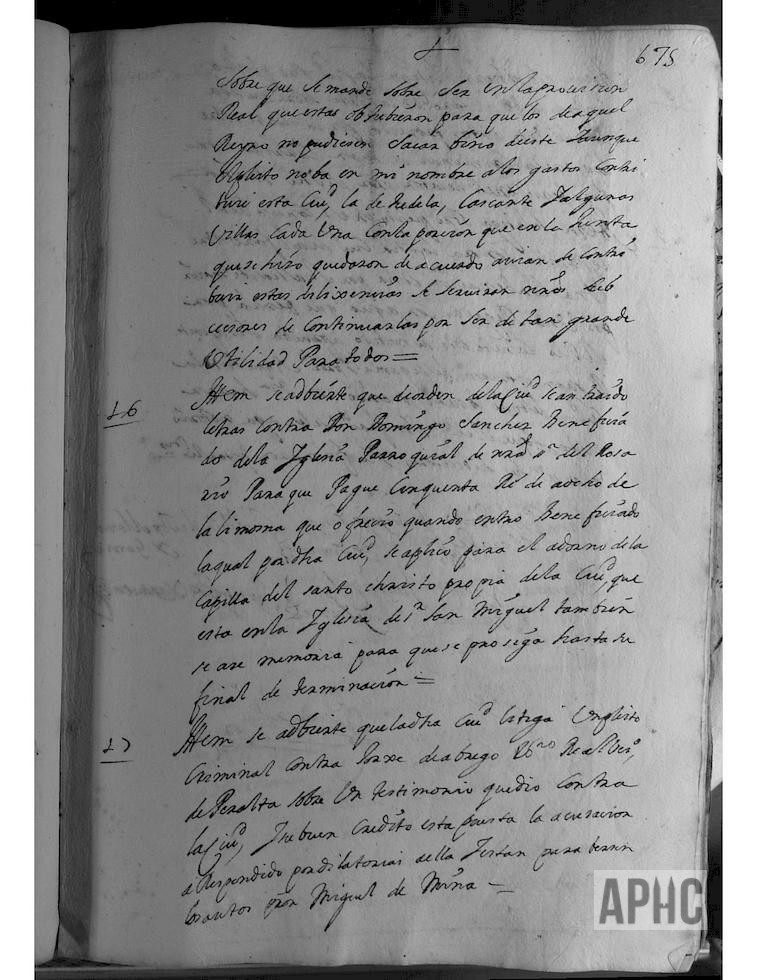 +
675
sobre que se mande sobre ser en la provission
Real que estas obtubieron para que los de aquel
Reyno no pudiesen sacar bino de este Aunque
el pleito no ba en mi nombre a los gastos contri
tuie esta Ciud, la de tudela, Cascante Jalgunas
Villas Cada Una Con la porcion que en la Junta
que se hizo quedaron de acuerdo avian de contri
buir estas dilixencias se serviran nros sub
cesores de Continuarlas por ser de tan grande
Utilidad Para todos =
16
Ittem se adbierte que de orden de la Ciud se an traido
letras Contra Don Domingo Sanchez Benefizia
do de la Iglesia Parroquial de nra sra del Rosa
rio Para que Pague Cinquenta Rs de aocho de
la limosna que ofrezio quando entro Benefiziado
la qual por dha Ciud, se aplico para el adorno de la
Capilla del santo christo propia de la Ciud, que
esta en la Iglesia de sr san Miguel tambien
se aze memoria para que se prosiga hasta su
final de terminacion =
17
Ittem se adbierte que la dha Ciud litiga Un pleito
Criminal contra Jorxe de abrego Real
de Peralta sobre Un testimonio que dio Contra
la Ciud, Jsu buen Credito esta puesta la acusacion
a Respondido por dilatorias a ella Jestan para
los autos por Miguel de Mina =
APHC